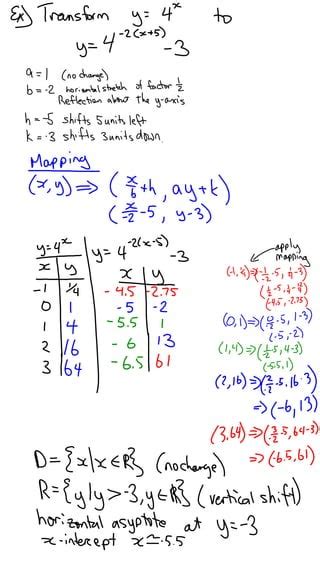 Ex) Transform y = 4^x to
y = 4^-2(x+5) - 3
a = 1 (no change)
b = -2 horizontal stretch of factor 1/2
Reflection about the y-axis
h = -5 shifts 5 units left
k = -3 shifts 3 units down
Mapping
(x, y) ⇒ (x/b + h, ay + k)
(x/-2 - 5, y - 3)
y = 4^x
x y
-1 1/4
0 1
1 4
2 16
3 64
y = 4^-2(x-5) - 3
x y
-4.5 -2.75
-5 -2
-5.5 1
-6 13
-6.5 61
apply mapping
(-1, 1/4) ⇒ (-1/-2 - 5, 1/4 - 3)
(1/2 - 5, 1/4 - 4)
(-4.5, -2.75)
(0, 1) ⇒ (0/-2 - 5, 1 - 3)
(-5, -2)
(1, 4) ⇒ (1/-2 - 5, 4 - 3)
(-5.5, 1)
(2, 16) ⇒ (2/-2 - 5, 16 - 3)
⇒ (-6, 13)
(3, 64) ⇒ (3/-2 - 5, 64 - 3)
⇒ (-6.5, 61)
D = {x | x ∈ R} (no change)
R = {y | y > -3, y ∈ R} (vertical shift)
horizontal asyptote at y = -3
x-intercept x ≃ -5.5